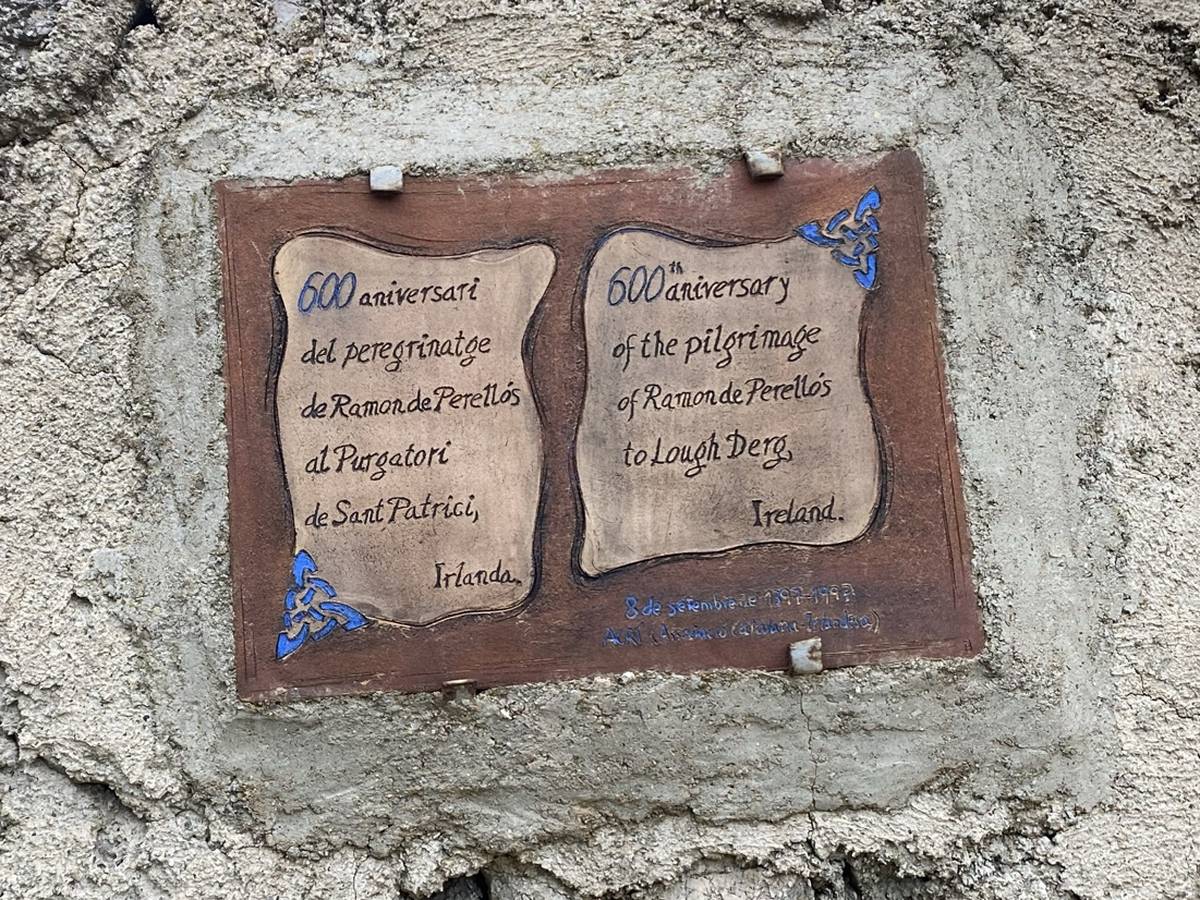 600 aniversari
del peregrinatge
de Ramon de Perellós
al Purgatori
de Sant Patrici,
Irlanda.
600th aniversary
of the pilgrimage
of Ramon de Perellós
to Lough Derg,
Ireland.
8 de setembre de 1397-1997
(Associació Catalana-Irlandesa)